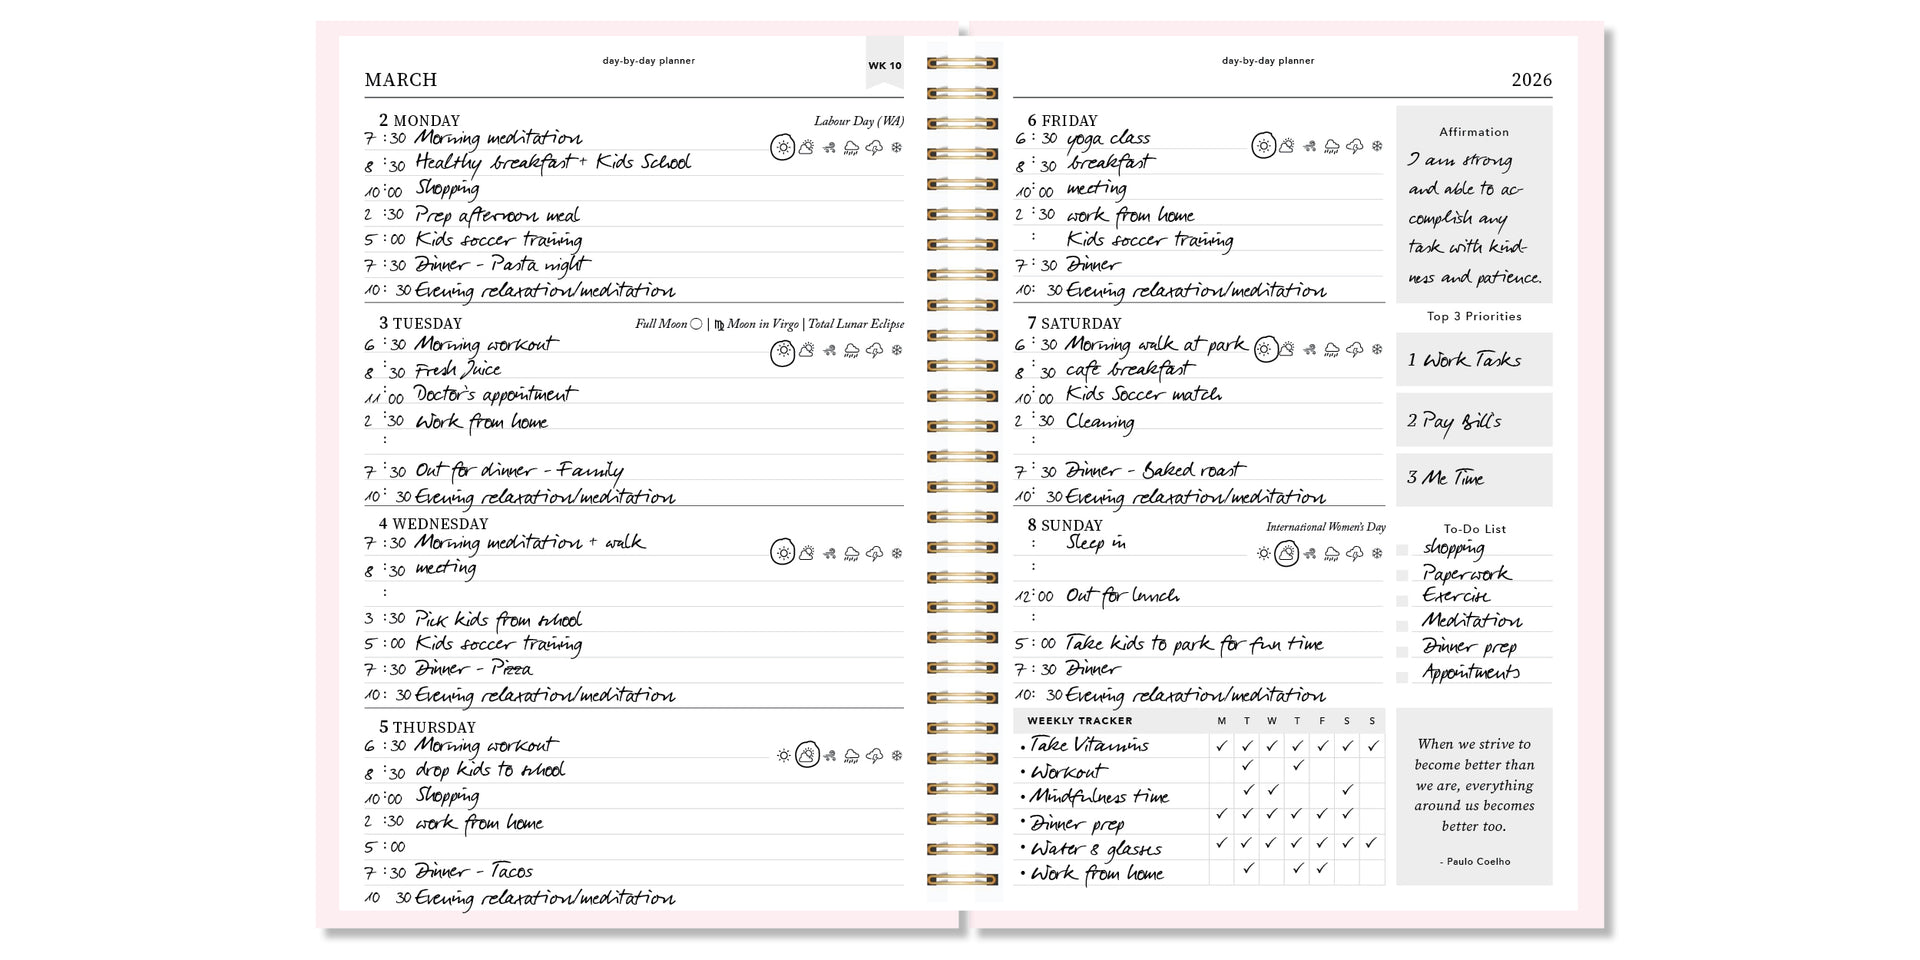 day-by-day planner
MARCH
WK 10
2 MONDAY
Labour Day (WA)
7 : 30 Morning meditation
8 : 30 Healthy breakfast + Kids School
10:00 Shopping
2 :30 Prep afternoon meal
5 : 00 Kids soccer training
7 : 30 Dinner - Pasta night
10: 30 Evening relaxation/meditation
3 TUESDAY
Full Moon ○ | ♍ Moon in Virgo | Total Lunar Eclipse
6 : 30 Morning workout
8 : 30 Fresh Juice
11:00 Doctor's appointment
2 :30 Work from home
:
7 : 30 Out for dinner - Family
10: 30 Evening relaxation/meditation
4 WEDNESDAY
7 : 30 Morning meditation + walk
8 : 30 meeting
:
3 : 30 Pick kids from school
5 : 00 Kids soccer training
7 : 30 Dinner - Pizza
10: 30 Evening relaxation/meditation
5 THURSDAY
6 : 30 Morning workout
8 : 30 drop kids to school
10:00 Shopping
2 :30 work from home
5 : 00
7 : 30 Dinner - Tacos
10 30 Evening relaxation/meditation
day-by-day planner
2026
6 FRIDAY
6 : 30 yoga class
8 : 30 breakfast
10:00 meeting
2 : 30 work from home
: Kids soccer training
7 : 30 Dinner
10: 30 Evening relaxation/meditation
7 SATURDAY
6 : 30 Morning walk at park
8 : 30 cafe breakfast
10:00 Kids Soccer match
2 : 30 Cleaning
7 : 30 Dinner - Baked roast
10: 30 Evening relaxation/meditation
8 SUNDAY
International Women's Day
: Sleep in
:
12:00 Out for lunch
:
5 : 00 Take kids to park for fun time
7 : 30 Dinner
10: 30 Evening relaxation/meditation
WEEKLY TRACKER M T W T F S S
• Take Vitamins ✓ ✓ ✓ ✓ ✓ ✓ ✓
• Workout ✓ ✓
• Mindfulness time ✓ ✓ ✓
• Dinner prep ✓ ✓ ✓ ✓ ✓ ✓
• Water 8 glasses ✓ ✓ ✓ ✓ ✓ ✓ ✓
• Work from home ✓ ✓ ✓
Affirmation
I am strong
and able to ac-
complish any
task with kind-
ness and patience.
Top 3 Priorities
1 Work Tasks
2 Pay Bill's
3 Me Time
To-Do List
shopping
Paperwork
Exercise
Meditation
Dinner prep
Appointments
When we strive to
become better than
we are, everything
around us becomes
better too.
- Paulo Coelho